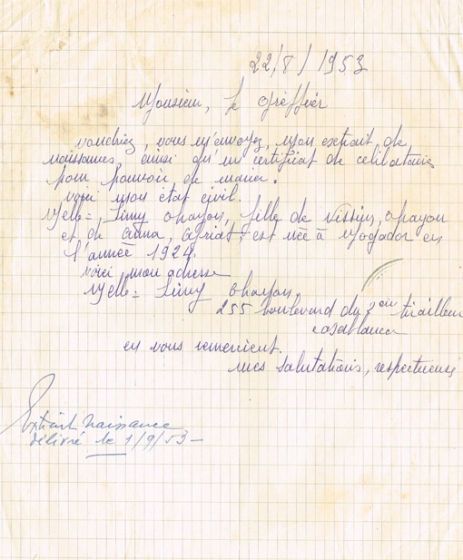 22/8/1953
Monsieur, le Greffier
voudriez, vous m'envoyez, mon extrait, de
naissance, ainsi qu'un certificat de celibataire
pour pouvoir me marier.
voici mon état civil.
Melle=, Simy ohayon, fille de Nissim, ohayon
et de Anna, est née à Mogador en
l'année 1924.
voici mon adresse
Melle= Simy ohayon,
255 boulevard du 2eme tirailleur
casablanca
en vous remerciant.
mes salutations, respectueuses
Extrait naissance
délivré le 1/9/53-